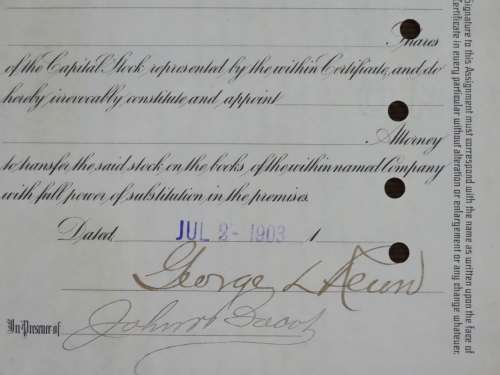 Shares
of the Capital Stock represented by the within Certificate, and do
hereby irrevocably constitute and appoint
Attorney
to transfer the said stock on the books of the within named Company
with full power of substitution in the premises.
Dated JUL 2- 1903 1
George L
In Presence of John
Signature to this Assignment must correspond with the name as written upon the face of
Certificate in every particular without alteration or enlargement or any change whatever.